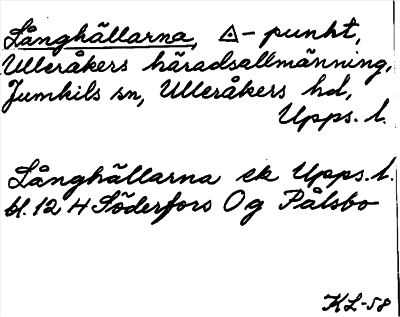 Långhällarna, △-punkt,
Ulleråkers häradsallmänning,
Jumkils sn, Ulleråkers hd,
Upps. l.
Långhällarna ek Upps. l.
bl. 12 H Söderfors O g Pålsbo
KL-58